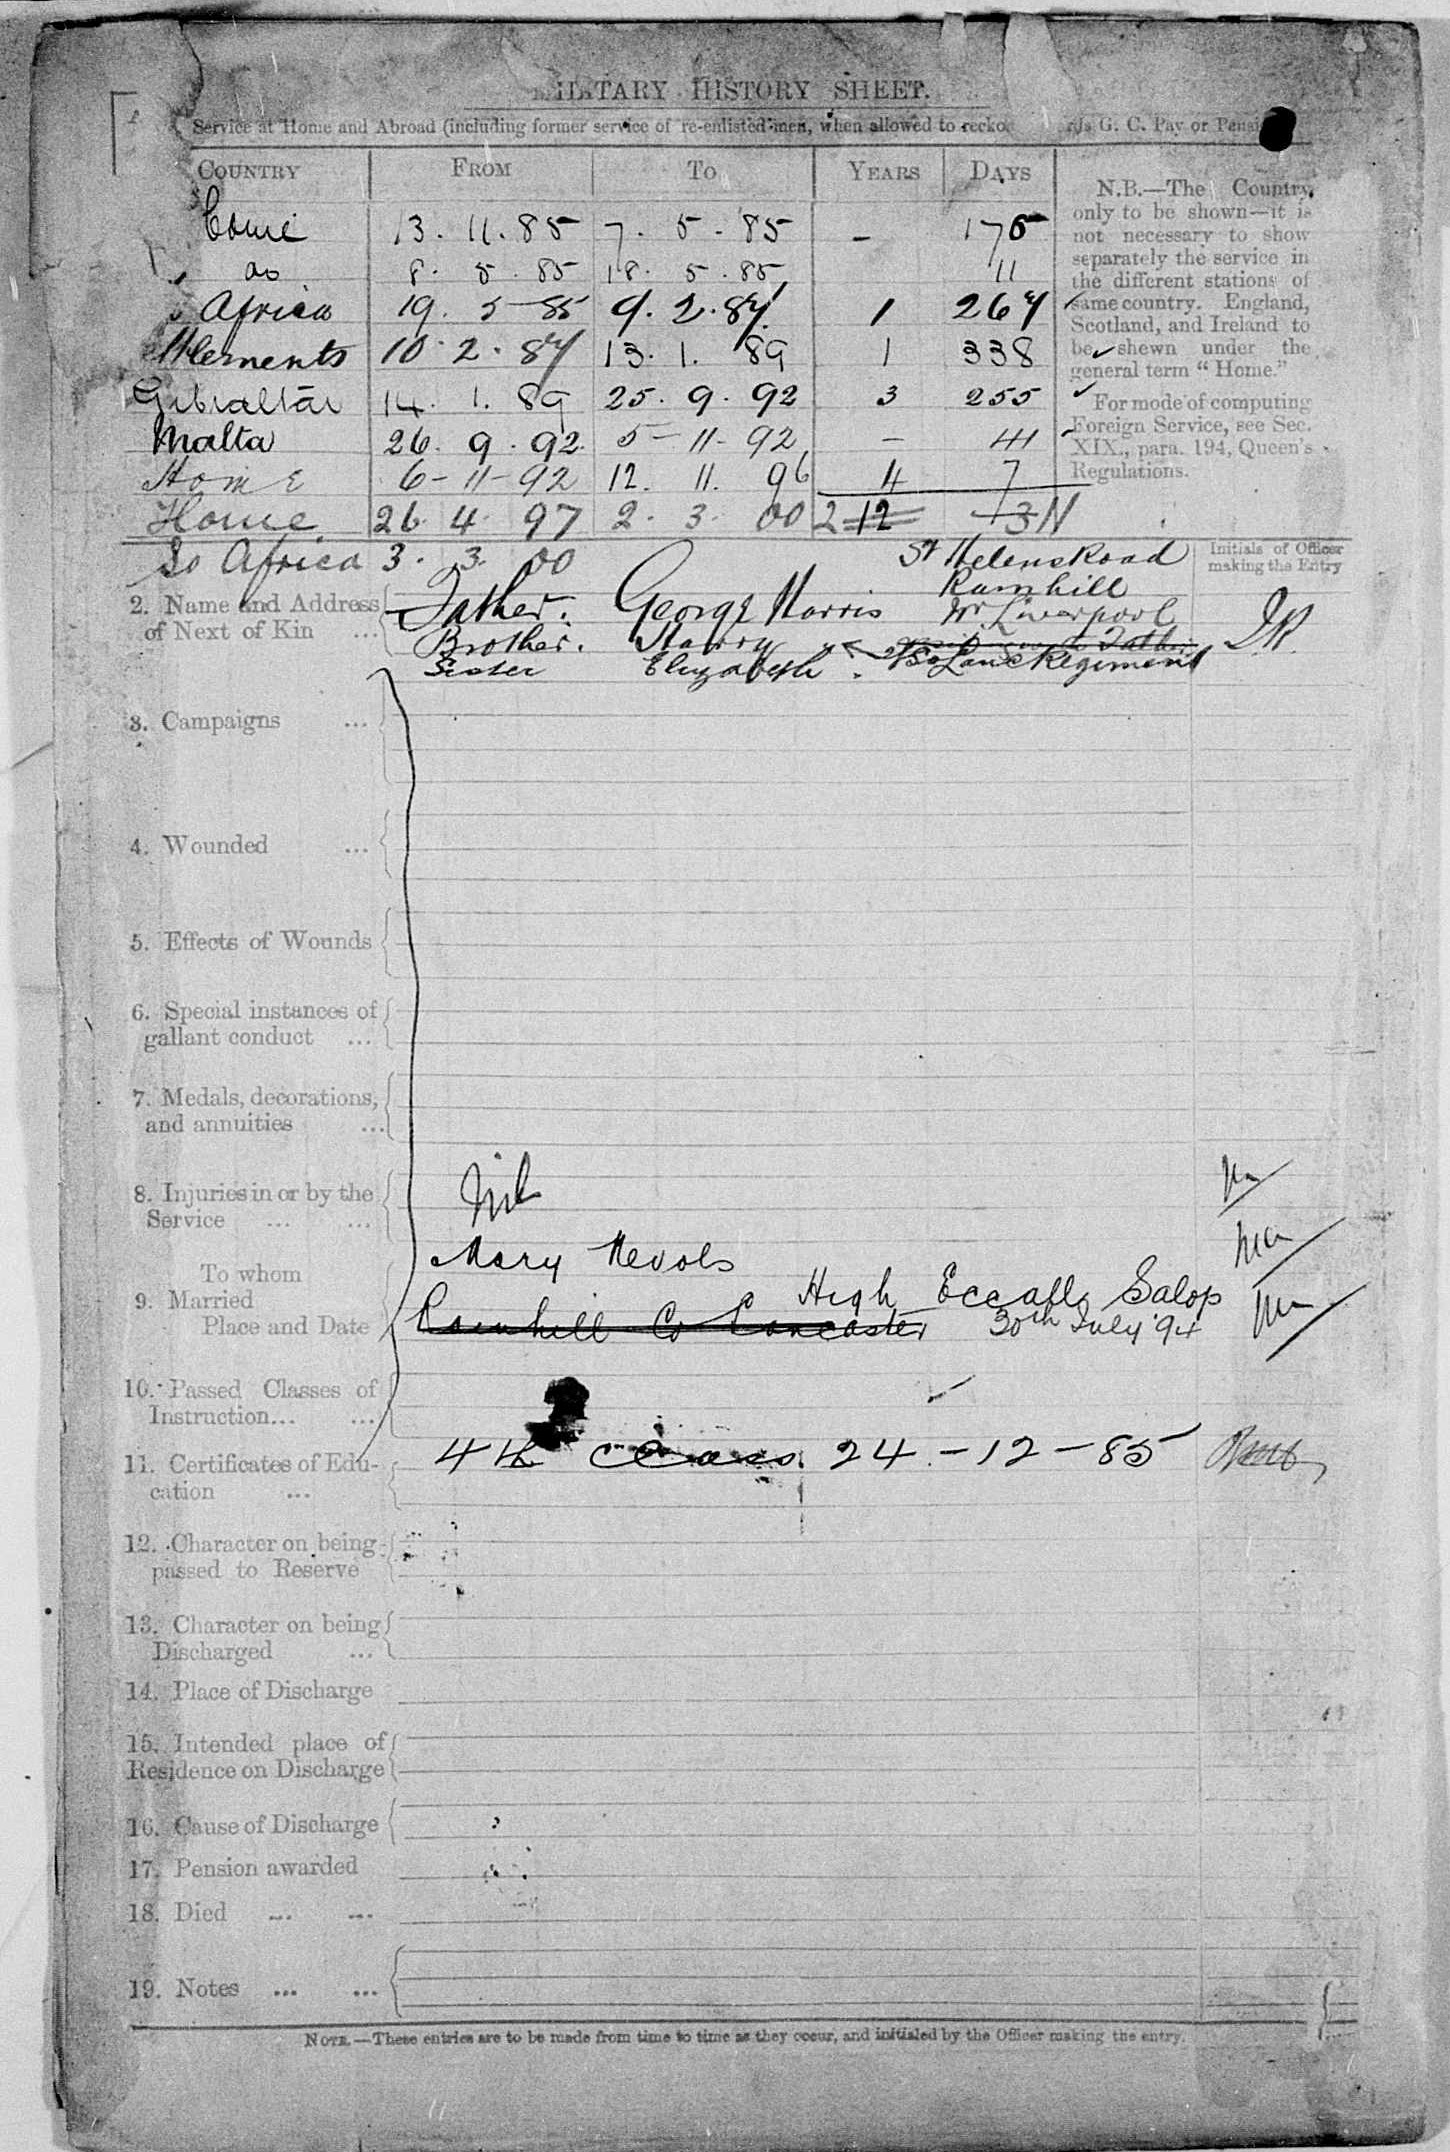 MILITARY HISTORY SHEET.
Service at Home and Abroad (including former service of re-enlisted men, when allowed to recko ds G. C. Pay or Pensi
COUNTRY FROM TO YEARS DAYS
Home 13. 11. 85 7. 5. 85 - 176
do 8. 5. 85 18. 5. 85 11
Africa 19. 5 85 9. 2. 87 1 267
ttlements 10. 2. 87 13. 1. 89 1 338
Gibraltar 14. 1. 89 25. 9. 92 3 255
Malta 26. 9. 92 5-11-92 - 41
Home 6-11-92 12. 11. 96 4 7
Home 26. 4. 97 2. 3. 00 2 12
So Africa 3. 3. 00
N.B.—The Country
only to be shown—it is
not necessary to show
separately the service in
the different stations of
same country. England,
Scotland, and Ireland to
be shewn under the
general term "Home."
For mode of computing
Foreign Service, see Sec.
XIX., para. 194, Queen's
Regulations.
Initials of Officer
making the Entry
2. Name and Address
of Next of Kin ...
Father. George Harris St Helens Road
Rainhill
Nr. Liverpool
Brother. Harry
Sister Elizabeth So Lanc Regiment
3. Campaigns ...
4. Wounded ...
5. Effects of Wounds
6. Special instances of
gallant conduct ...
7. Medals, decorations,
and annuities ...
8. Injuries in or by the
Service ... ...
Nil
To whom
9. Married
Place and Date
Mary Nevols
High Eccall Salop
Rainhill Co Lancaster 30th July 94
10. Passed Classes of
Instruction... ...
11. Certificates of Edu-
cation ...
4th Class 24-12-85
12. Character on being
passed to Reserve
13. Character on being
Discharged ...
14. Place of Discharge
15. Intended place of
Residence on Discharge
16. Cause of Discharge
17. Pension awarded
18. Died ... ...
19. Notes ... ...
NOTE.—These entries are to be made from time to time as they occur, and initialed by the Officer making the entry.